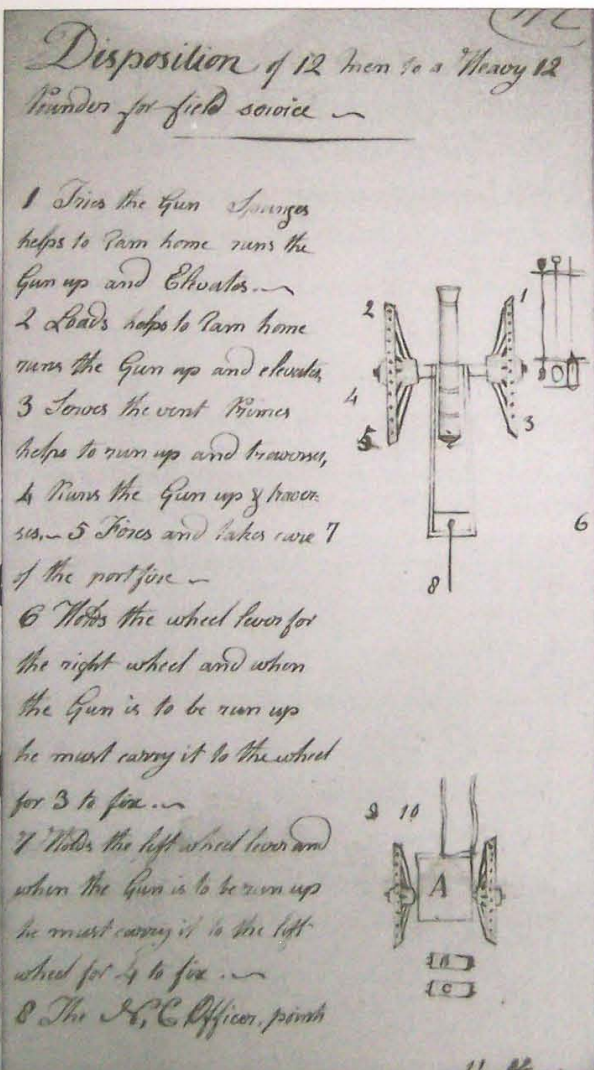 Disposition of 12 Men to a Heavy 12
Pounder for field service
1 Tries the Gun Spunges
helps to Ram home runs the
Gun up and Elevates.
2 Loads helps to Ram home
runs the Gun up and elevates,
3 Serves the vent Primes
helps to run up and traverses,
4 Runs the Gun up & traver-
ses. 5 Fires and takes care
of the portfire
6 Holds the wheel lever for
the right wheel and when
the Gun is to be run up
he must carry it to the wheel
for 3 to fix.
7 Holds the left wheel lever and
when the Gun is to be run up
he must carry it to the left
wheel for 4 to fix.
8 The N, C Officer, points
2
1
4
3
5
7
6
8
9 10
A
B
C